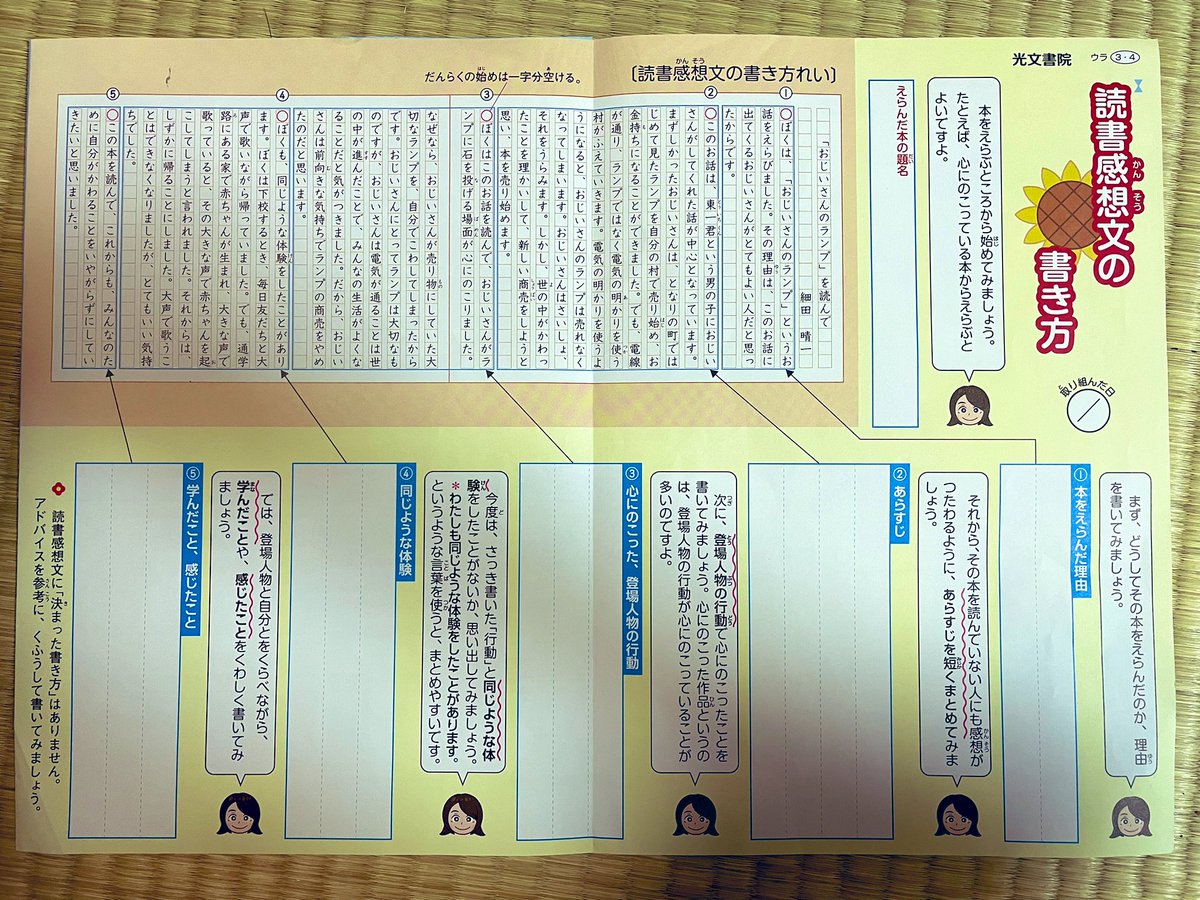 光文書院
ウラ 3・4
読書感想文の
書き方
取り組んだ日
本をえらぶところから始めてみましょう。
たとえば、心にのこっている本からえらぶと
よいですよ。
えらんだ本の題名
〔読書感想文の書き方れい〕
だんらくの始めは一字分空ける。
「おじいさんのランプ」を読んで
細田 晴一
①
○ぼくは、「おじいさんのランプ」というお
話をえらびました。その理由は、このお話に
出てくるおじいさんがとてもよい人だと思っ
たからです。
②
○このお話は、東一君という男の子におじい
さんがしてくれた話が中心となっています。
まずしかったおじいさんは、となりの町では
じめて見たランプを自分の村で売り始め、お
金持ちになることができました。でも、電線
が通り、ランプではなく電気の明かりを使う
村がふえていきます。電気の明かりを使うよ
うになると、おじいさんのランプは売れなく
なってしまいます。おじいさんはさいしょ、
それをうらみます。しかし、世の中がかわっ
たことを理かいして、新しい商売をしようと
思い、本を売り始めます。
③
○ぼくはこのお話を読んで、おじいさんがラ
ンプに石を投げる場面が心にのこりました。
なぜなら、おじいさんが売り物にしていた大
切なランプを、自分でこわしてしまったから
です。おじいさんにとってランプは大切なも
のですが、おじいさんは電気が通ることは世
の中が進んだことで、みんなの生活がよくな
ることだと気がつきました。だから、おじい
さんは前向きな気持ちでランプの商売をやめ
たのだと思います。
④
○ぼくも、同じような体験をしたことがあり
ます。ぼくは下校するとき、毎日友だちと大
声で歌いながら帰っていました。でも、通学
路にある家で赤ちゃんが生まれ、大きな声で
歌っていると、その大きな声で赤ちゃんを起
こしてしまうと言われました。それからは、
しずかに帰ることにしました。大声で歌うこ
とはできなくなりましたが、とてもいい気持
ちでした。
⑤
○この本を読んで、これからも、みんなのた
めに自分がかわることをいやがらずにしてい
きたいと思いました。
まず、どうしてその本をえらんだのか、理由
を書いてみましょう。
①本をえらんだ理由
それから、その本を読んでいない人にも感想が
つたわるように、あらすじを短くまとめてみま
しょう。
②あらすじ
次に、登場人物の行動で心にのこったことを
書いてみましょう。心にのこった作品というの
は、登場人物の行動が心にのこっていることが
多いのですよ。
③心にのこった、登場人物の行動
今度は、さっき書いた「行動」と同じような体
験をしたことがないか、思い出してみましょう。
＊わたしも同じような体験をしたことがあります。
というような言葉を使うと、まとめやすいです。
④同じような体験
では、登場人物と自分とをくらべながら、
学んだことや、感じたことをくわしく書いてみ
ましょう。
⑤学んだこと、感じたこと
読書感想文に「決まった書き方」はありません。
アドバイスを参考に、くふうして書いてみましょう。